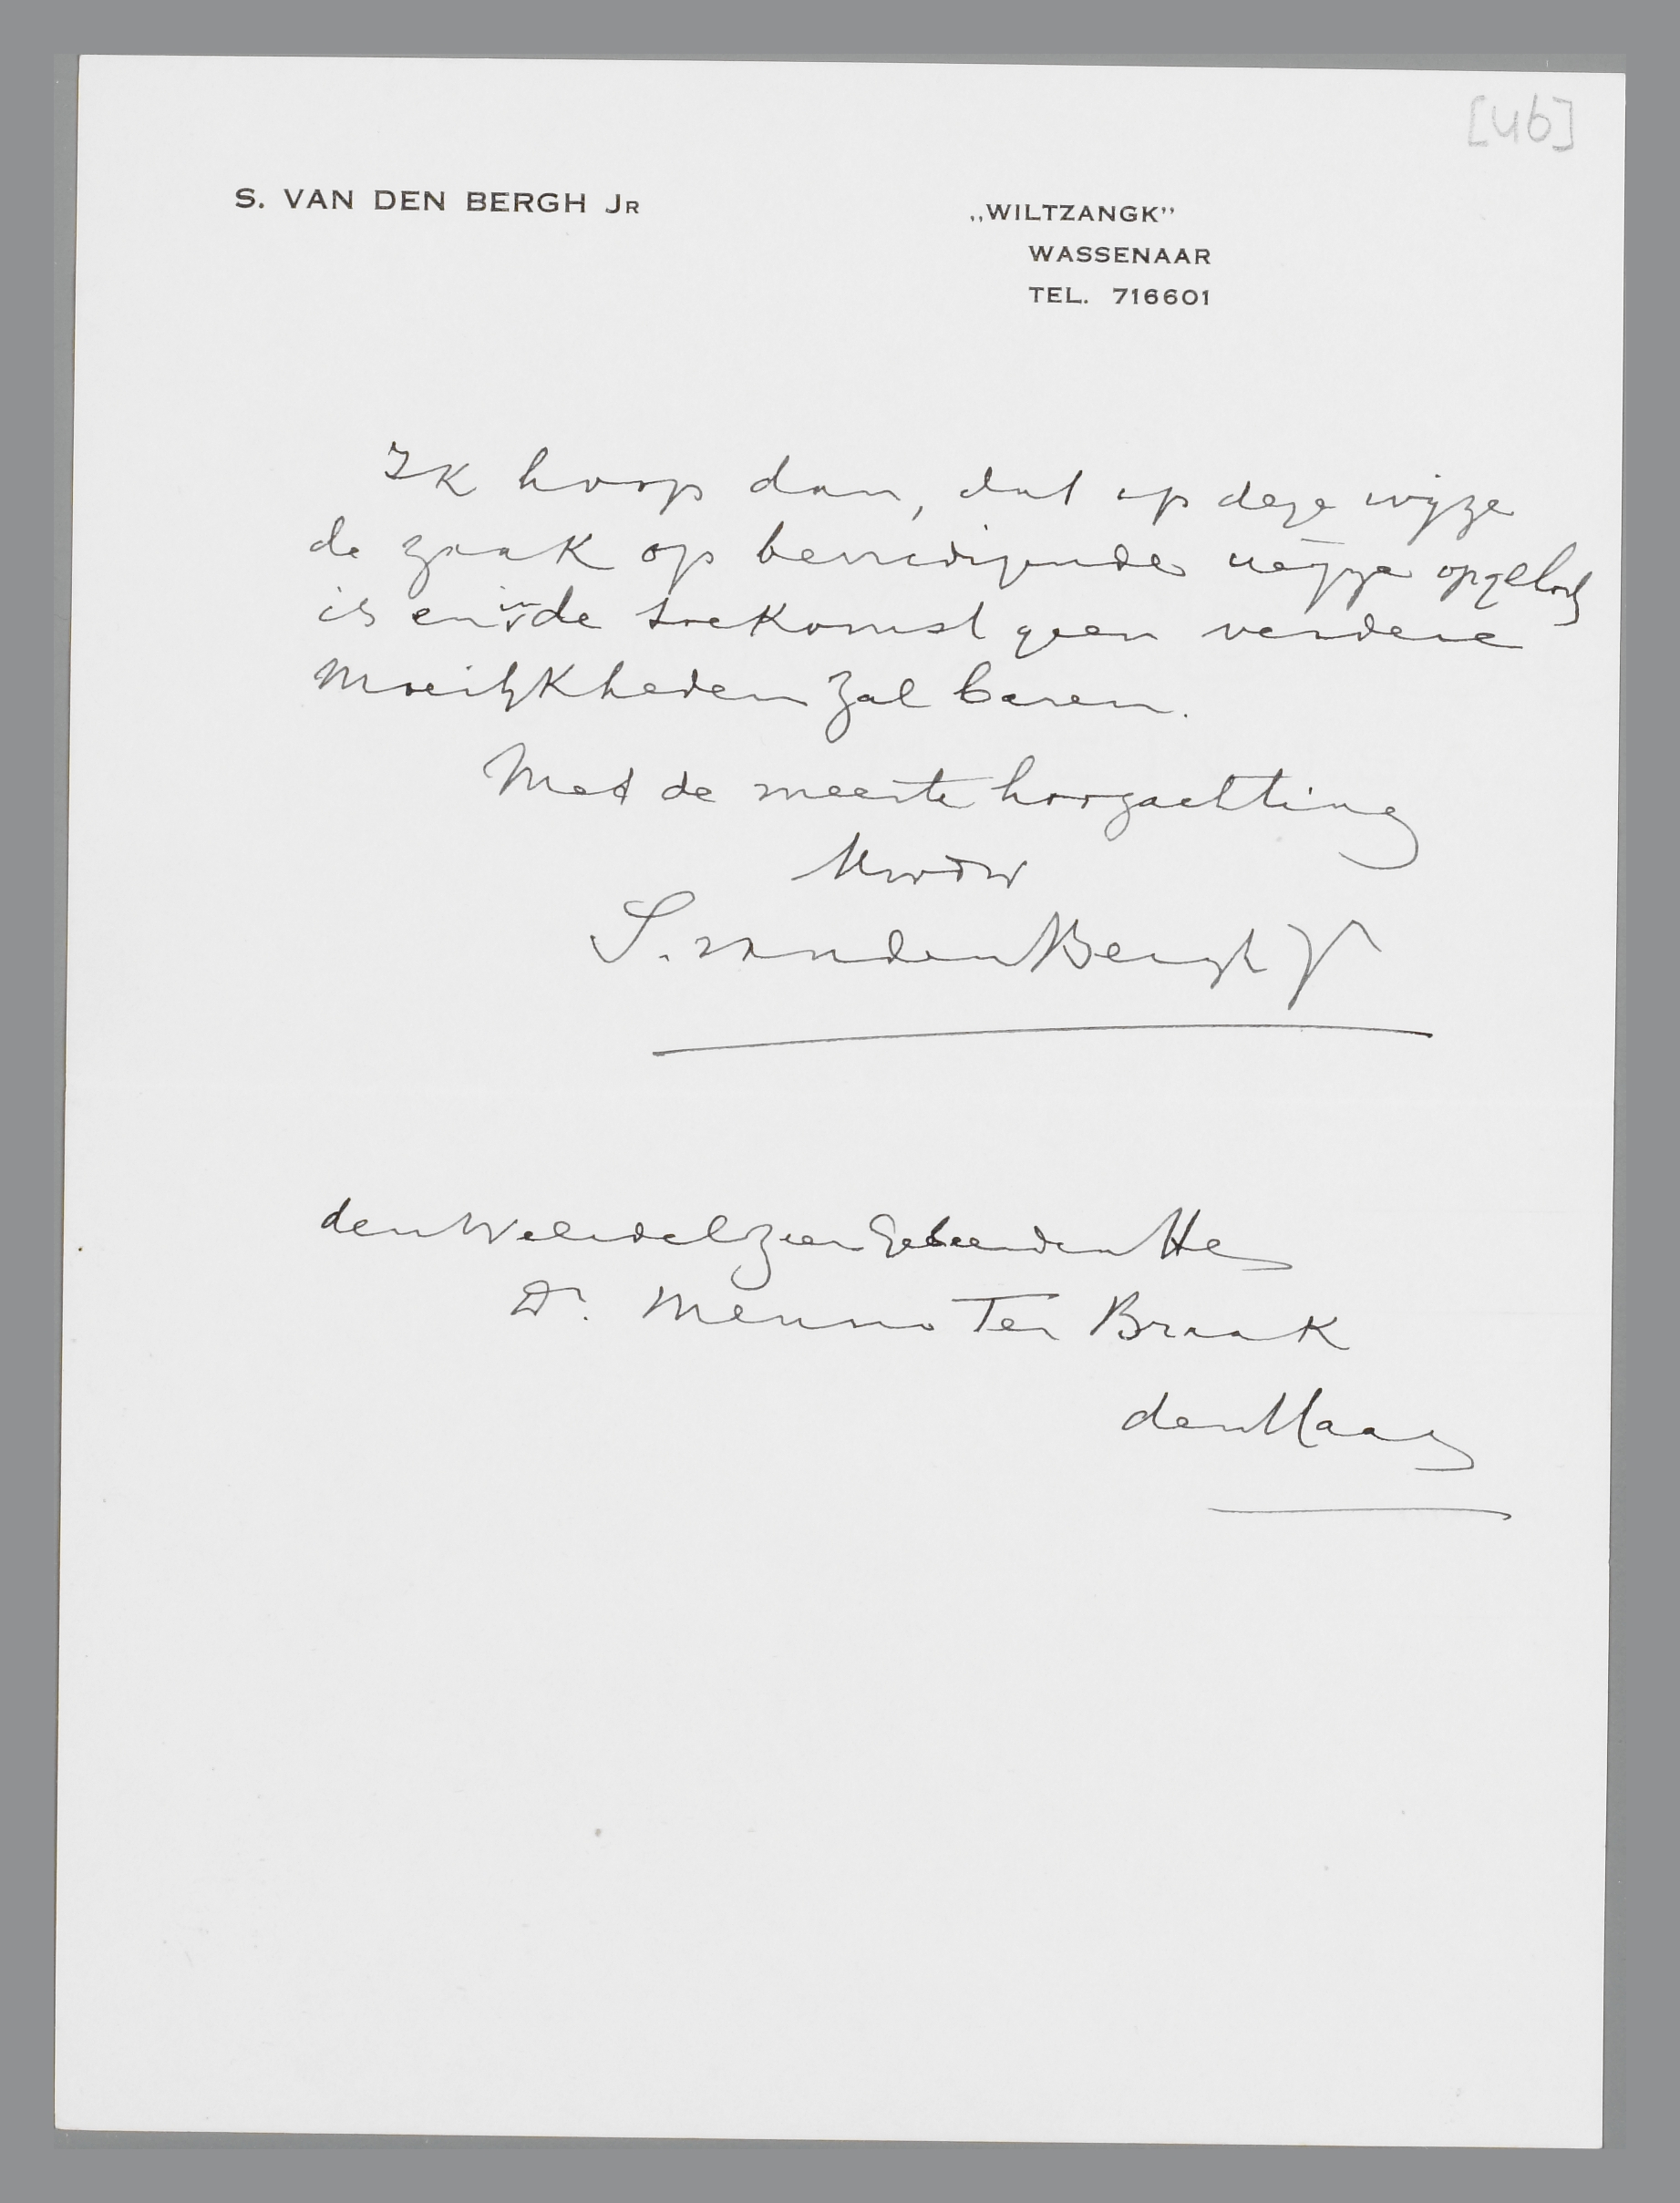 [46]
S. VAN DEN BERGH JR
„WILTZANGK”
WASSENAAR
TEL. 716601
Ik hoop dan, dat op deze wijze
de zaak op bevredigende wijze opgelost
is en in de toekomst geen verdere
Moeilijkheden zal baren.
Met de meeste hoogachting
Uwdw
S. van den Bergh Jr
den WelEdelZeerGeleerden Heer
Dr. Menno Ter Braak
den Haag